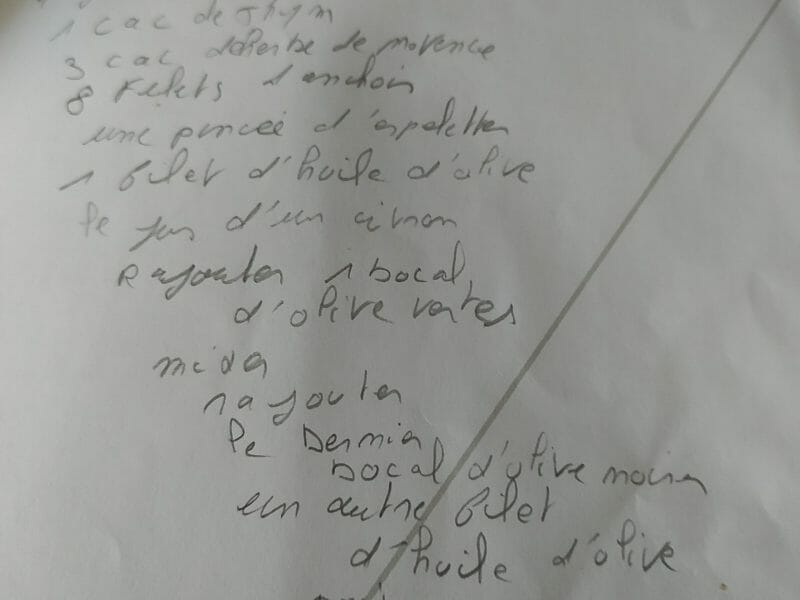 1 cac de Thym
3 cac d'herbe de provence
8 Filets d'anchois
une pincée d'espelette
1 filet d'huile d'olive
le jus d'un citron
Rajouter 1 bocal
d'olive vertes
mixer
rajouter
le dernier
bocal d'olive noires
un autre filet
d'huile d'olive